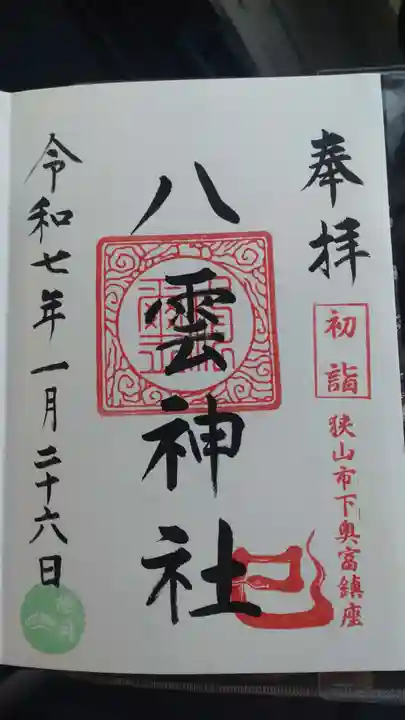 奉拝
初詣
狭山市下奥富鎮座
八雲神社
巳
令和七年一月二十六日